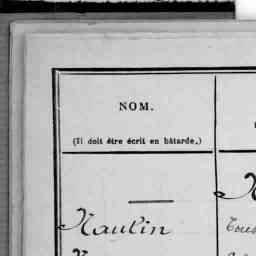 NOM.
(Il doit être écrit en bâtarde.)
Naulin